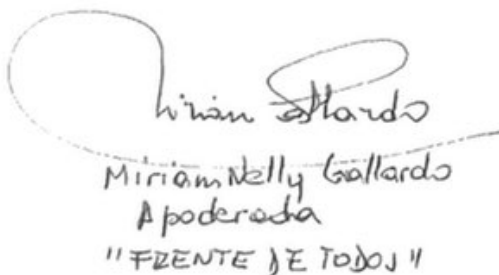 Miriam Gallardo
Miriam Nelly Gallardo
Apoderada
"FRENTE DE TODOS"